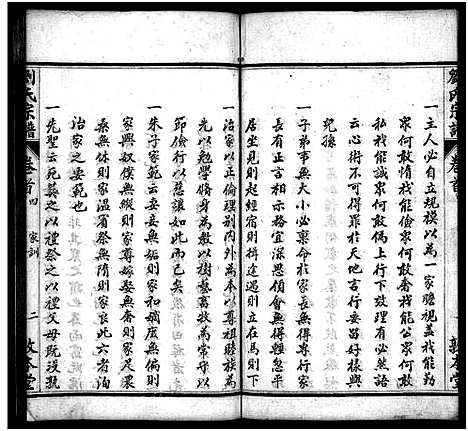 劉氏宗譜
卷首
一主人必自立規模以為一家瞻視蓋我能勤
家何敢惰我能儉眾何敢奢我能公家何敢
私我能誠家何敢偽上行下效理有必然語
云心術不可得罪於天地言行要留好樣與
兒孫
一子弟有事無小必稟命於家長無得專行家
長有正言相示務宜深思偵會無得輕忽平
居坐見則起經宿則揖途遇則立在馬則下
一治家以正倫理別內外為本以尊祖睦族為
先以勉學脩身為教以樹藝畜牧為常守以
節儉行以慈讓如此而已矣
一朱子家範云妻無妬則家和嫡庶無偏則
家興奴僕無縱則家尊嫁娶無奢則家足農
桑無休則家温賓祭無隋則家良此六者洵
治家之要範也
一先聖云死葬之以禮祭之以禮父母既沒執
劉氏宗譜
卷首 四
家訓
二
敦本堂
敦本堂